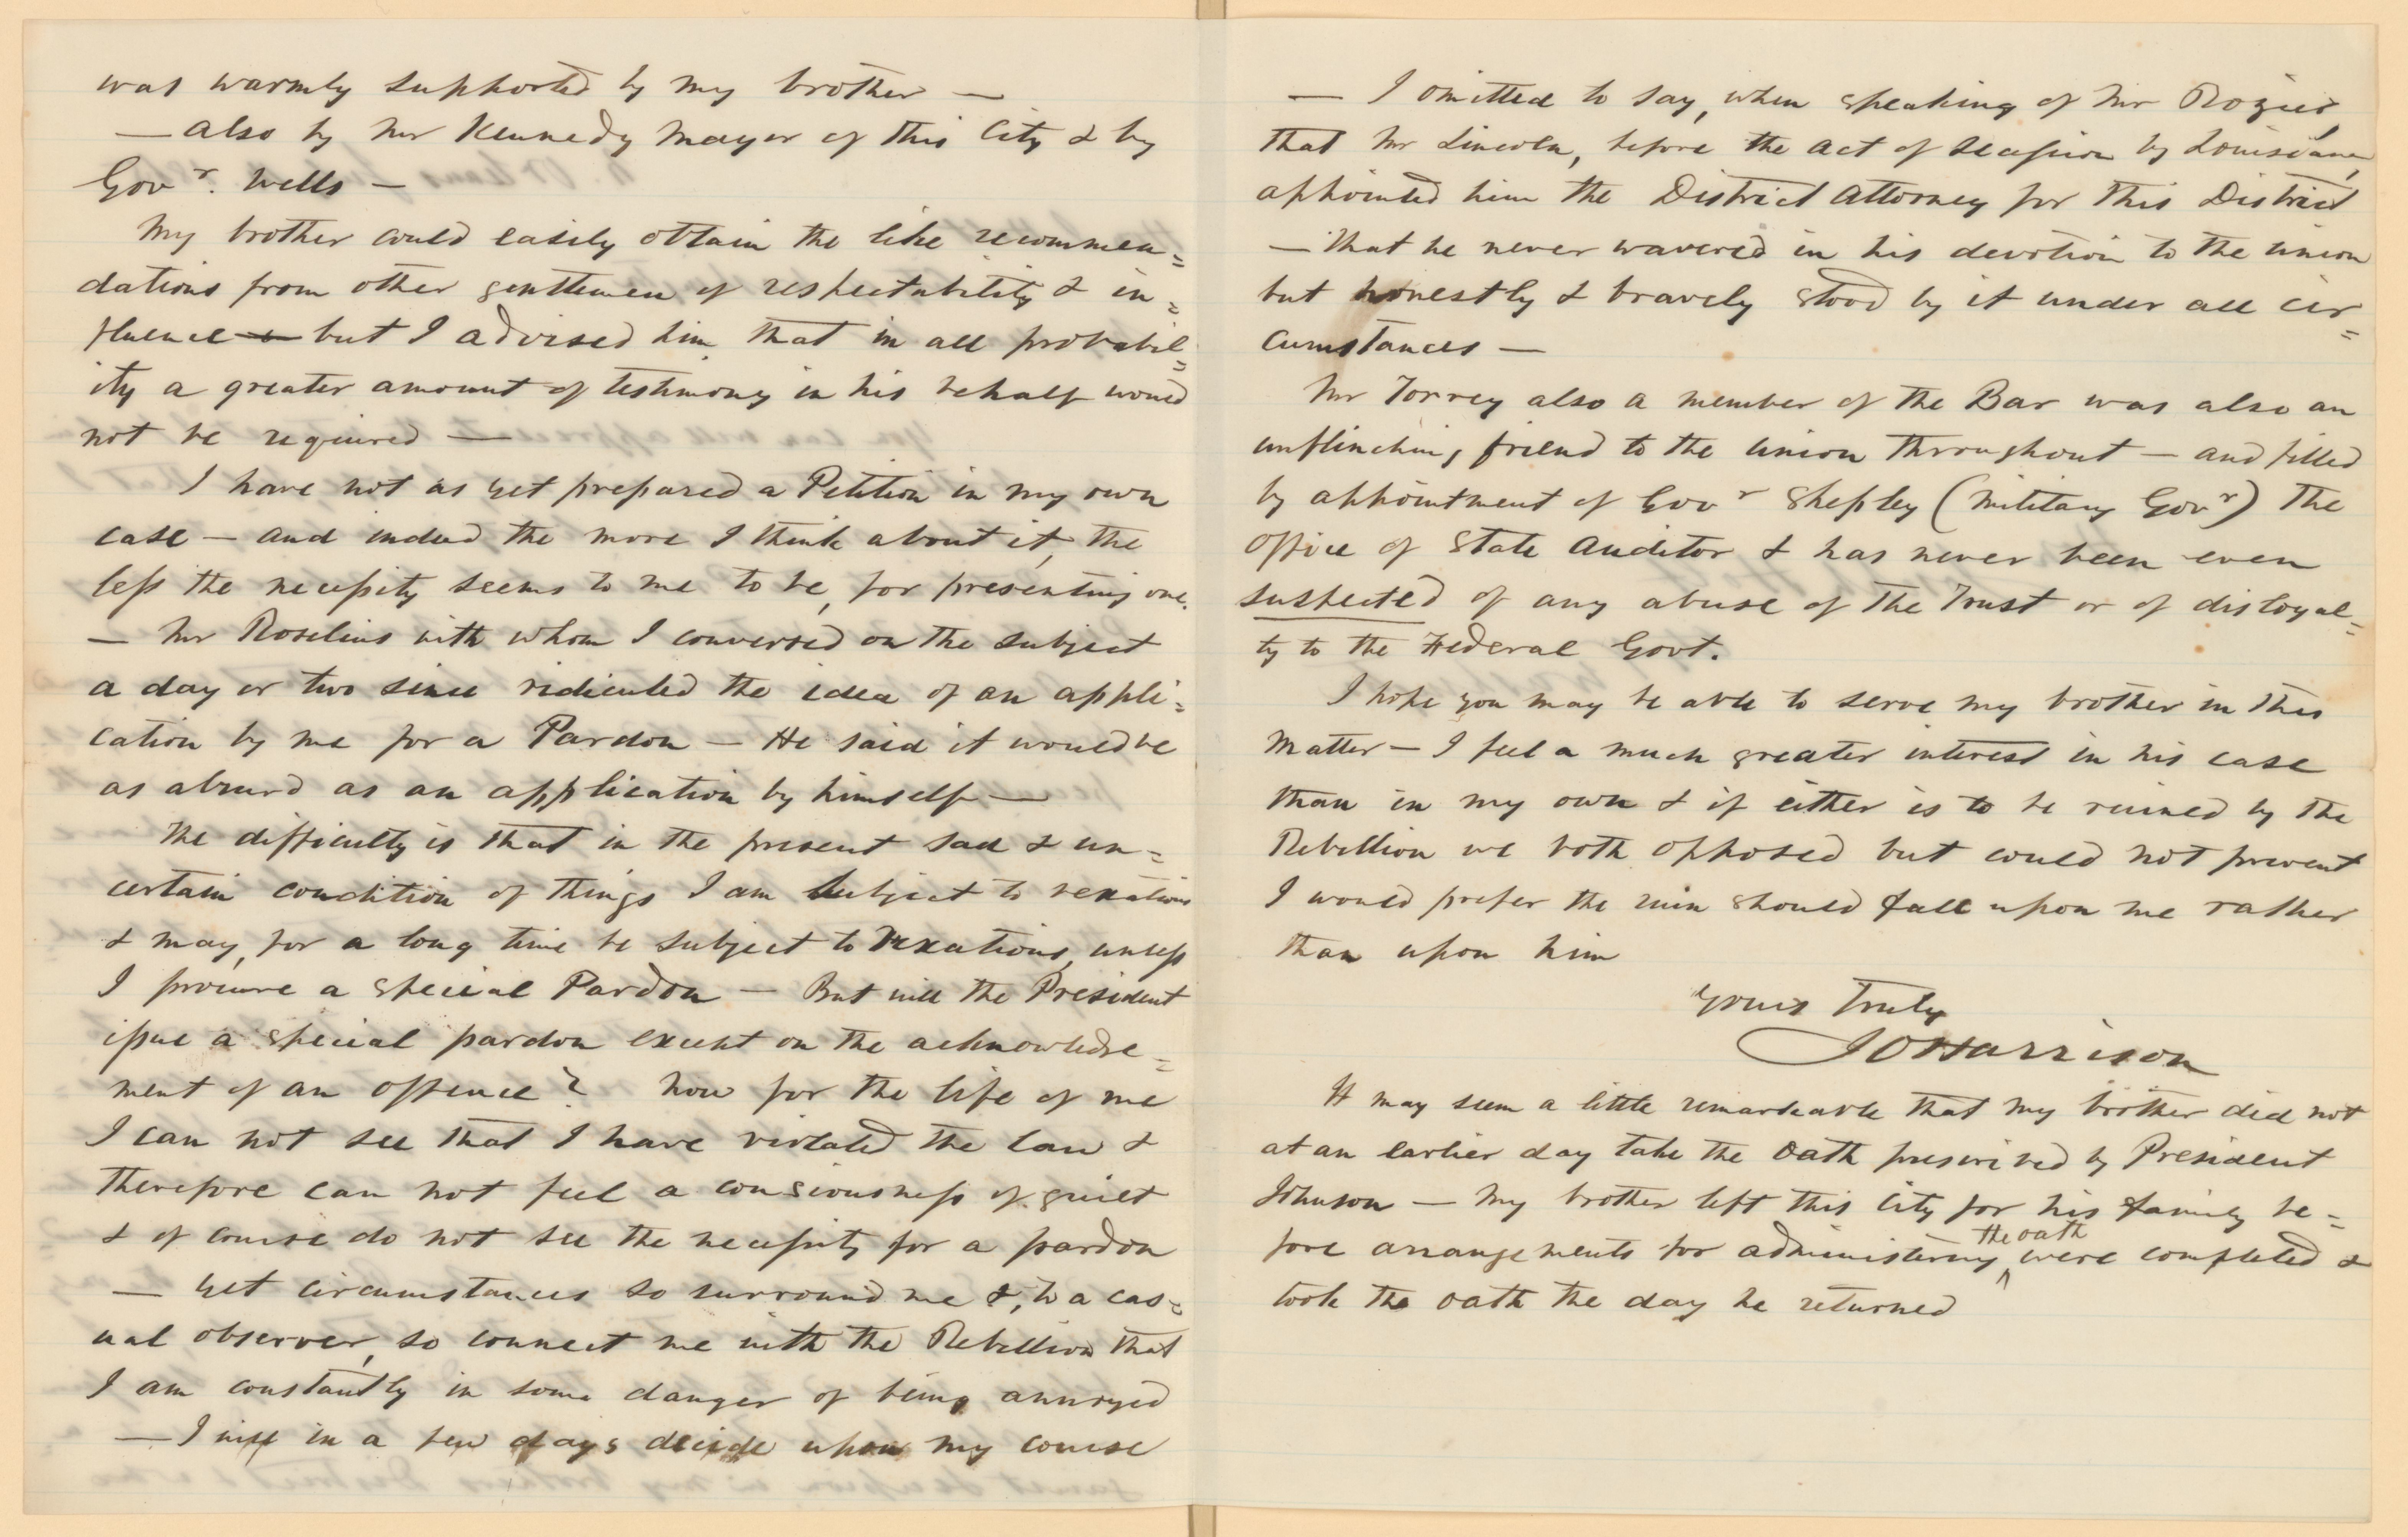 was warmly supported by my brother —
— also by Mr Kennedy Mayor of this City & by
Govr. Wells —
My brother could easily obtain the like recommen=
dations from other gentlemen of respectability & in=
fluence — but I advised him that in all probabil=
ity a greater amount of testimony in his behalf would
not be required —
I have not as yet prepared a Petition in my own
case — and indeed the more I think about it, the
less the necessity seems to me to be, for presenting one.
— Mr Roselius with whom I conversed on the subject
a day or two since ridiculed the idea of an appli=
cation by me for a Pardon — He said it would be
as absurd as an application by himself —
The difficulty is that in the present sad & un=
certain condition of things I am subject to vexations
& may, for a long time be subject to vexations, unless
I procure a special Pardon — But will the President
issue a special pardon except on the acknowledge=
ment of an offence? Now for the life of me
I can not see that I have violated the law &
therefore can not feel a consciousness of guilt
& of course do not see the necessity for a pardon
— yet circumstances so surround me &, to a cas=
ual observer, so connect me with the Rebellion that
I am constantly in some danger of being annoyed
— I will in a few days decide upon my course
— I omitted to say, when speaking of Mr Rozier,
that Mr Lincoln, before the act of secession by Louisiana,
appointed him the District Attorney for this District
— that he never wavered in his devotion to the union
but honestly & bravely stood by it under all cir=
cumstances —
Mr Torrey also a member of the Bar was also an
unflinching friend to the union throughout — and filled
by appointment of Govr Shepley (Military Govr) the
office of State Auditor & has never been even
suspected of any abuse of the Trust or of disloyal=
ty to the Federal Govt.
I hope you may be able to serve my brother in this
matter — I feel a much greater interest in his case
than in my own & if either is to be ruined by the
Rebellion we both opposed but could not prevent
I would prefer the ruin should fall upon me rather
than upon him
Yours Truly
J O Harrison
It may seem a little remarkable that my brother did not
at an earlier day take the oath prescribed by President
Johnson — My brother left this City for his family be=
fore arrangements for administering the oath were completed &
took the oath the day he returned